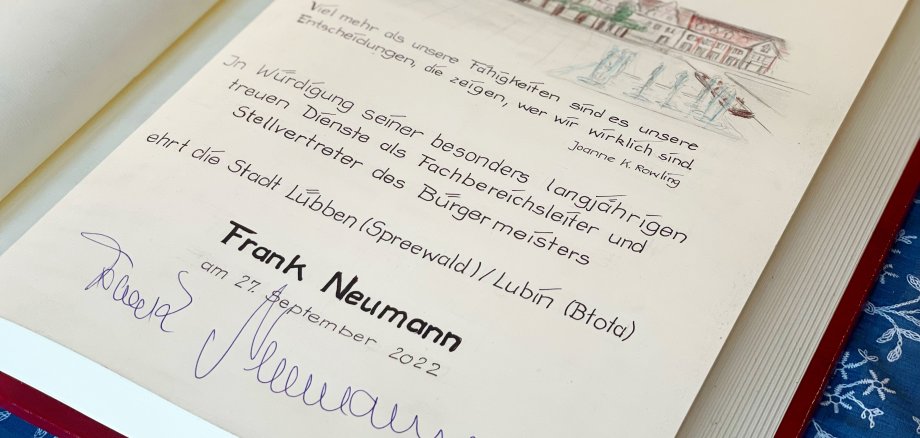 Viel mehr als unsere Fähigkeiten sind es unsere
Entscheidungen, die zeigen, wer wir wirklich sind.
Joanne K. Rowling
In Würdigung seiner besonders langjährigen
treuen Dienste als Fachbereichsleiter und
Stellvertreter des Bürgermeisters
ehrt die Stadt Lübben (Spreewald) / Lubin (Błota)
Frank Neumann
am 27. September 2022
Frank Neumann